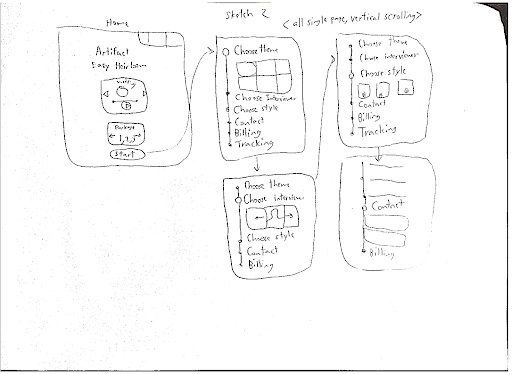 Home
Sketch 2
< all single page, vertical scrolling >
Artifact
Easy Heirloom
Package
1, 2, 3
Start
Choose theme
Choose Interviewer
Choose style
Contact
Billing
Tracking
Choose theme
Choose interviewer
Choose style
Contact
Billing
Choose theme
Choose interviewer
Choose style
Contact
Billing
Tracking
Contact
Billing